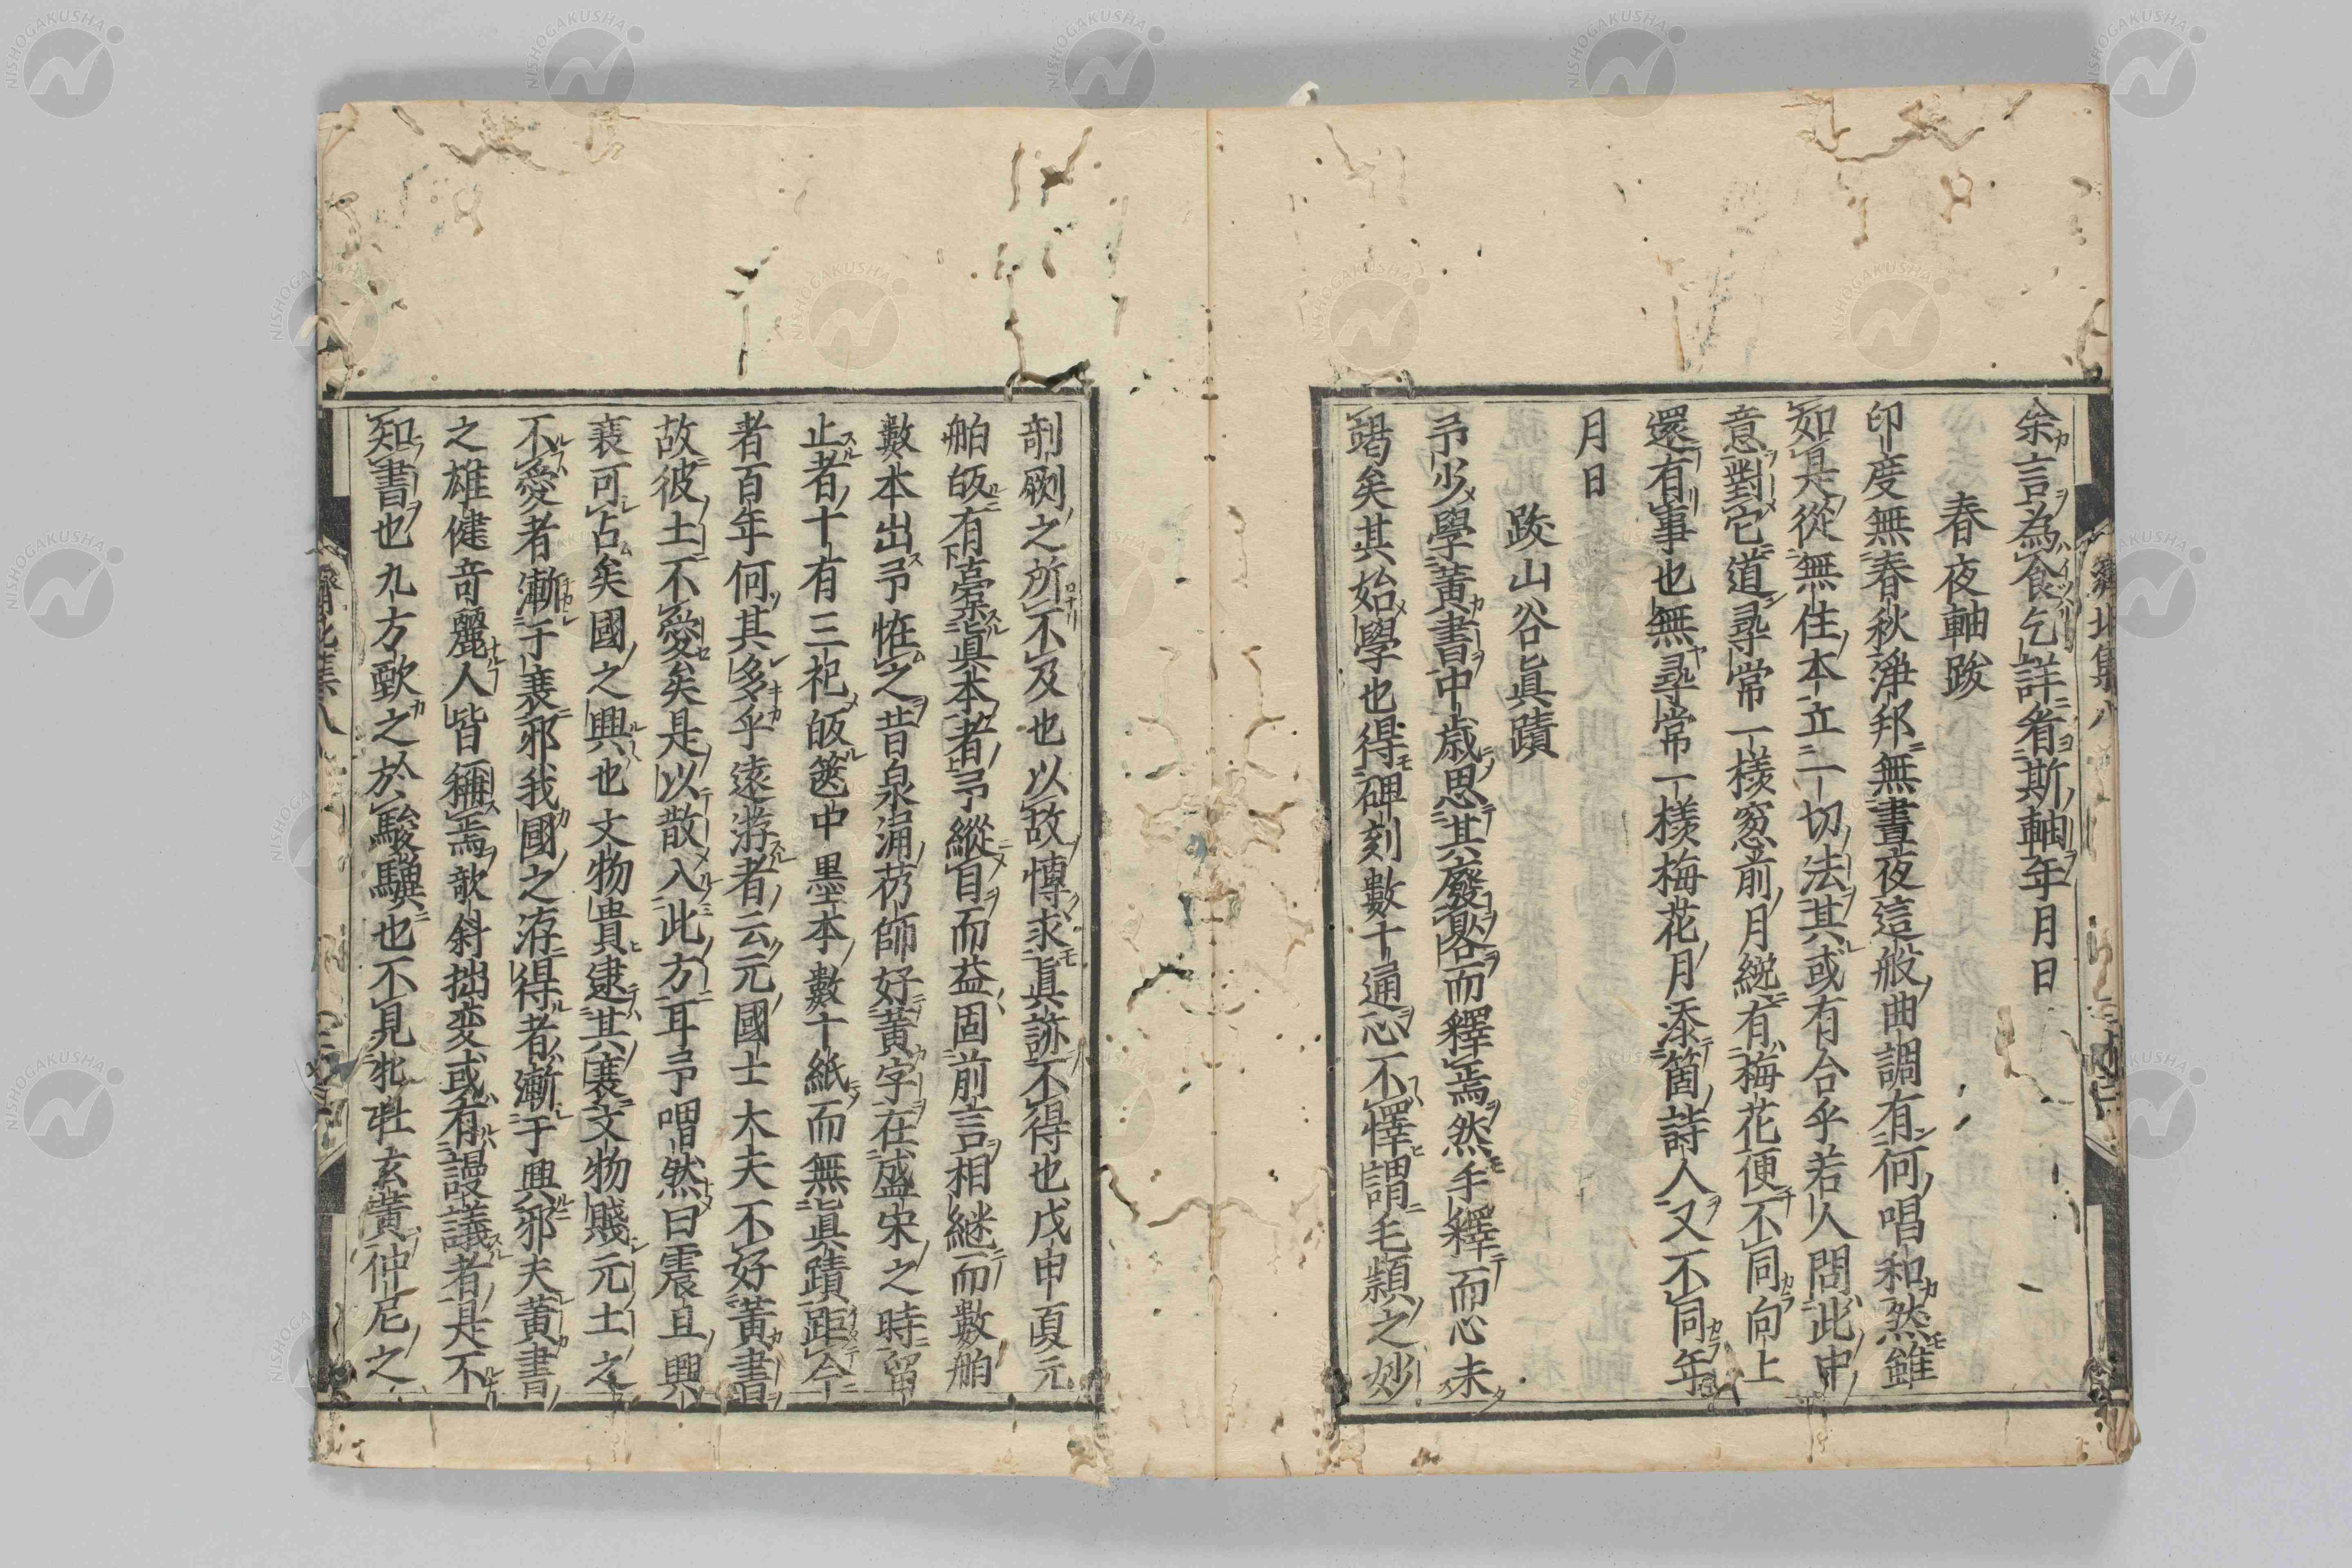 余言為食乞詳着斯軸年月日
春夜軸跋
印度無春秋淨邦無晝夜這般曲調有何唱和然雖
如是從無住本立一切法其或有合乎若人問此中
意對它道尋常一樣窓前月纔有梅花便不同向上
還有事也無尋常一樣梅花月添箇詩人又不同年
月日
跋山谷眞蹟
予少學黃書中歲思其廢畧而釋焉然手釋而心未
竭矣其始學也得碑刻數十通心不懌謂毛頴之妙
剞劂之所不及也以故慱求眞跡不得也戊申夏元
舶皈有槖眞本者予縱目而益固前言相継而數舶
數本出予恠之昔泉涌芿師好黃字在盛宋之時留
止者十有三祀皈篋中墨本數十紙而無眞蹟距今
者百年何其多乎遠游者云元國士大夫不好黃書
故彼土不愛矣是以散入此方耳予喟然曰震旦興
衰可占矣國之興也文物貴逮其衰文物賤元土之
不愛者漸于衰邪我國之洊得者漸于興邪夫黃書
之雄健竒麗人皆稱焉欹斜拙変或有謾議者是不
知書也九方歅之於駿驥也不見牝牡玄黃仲尼之
濟北集八